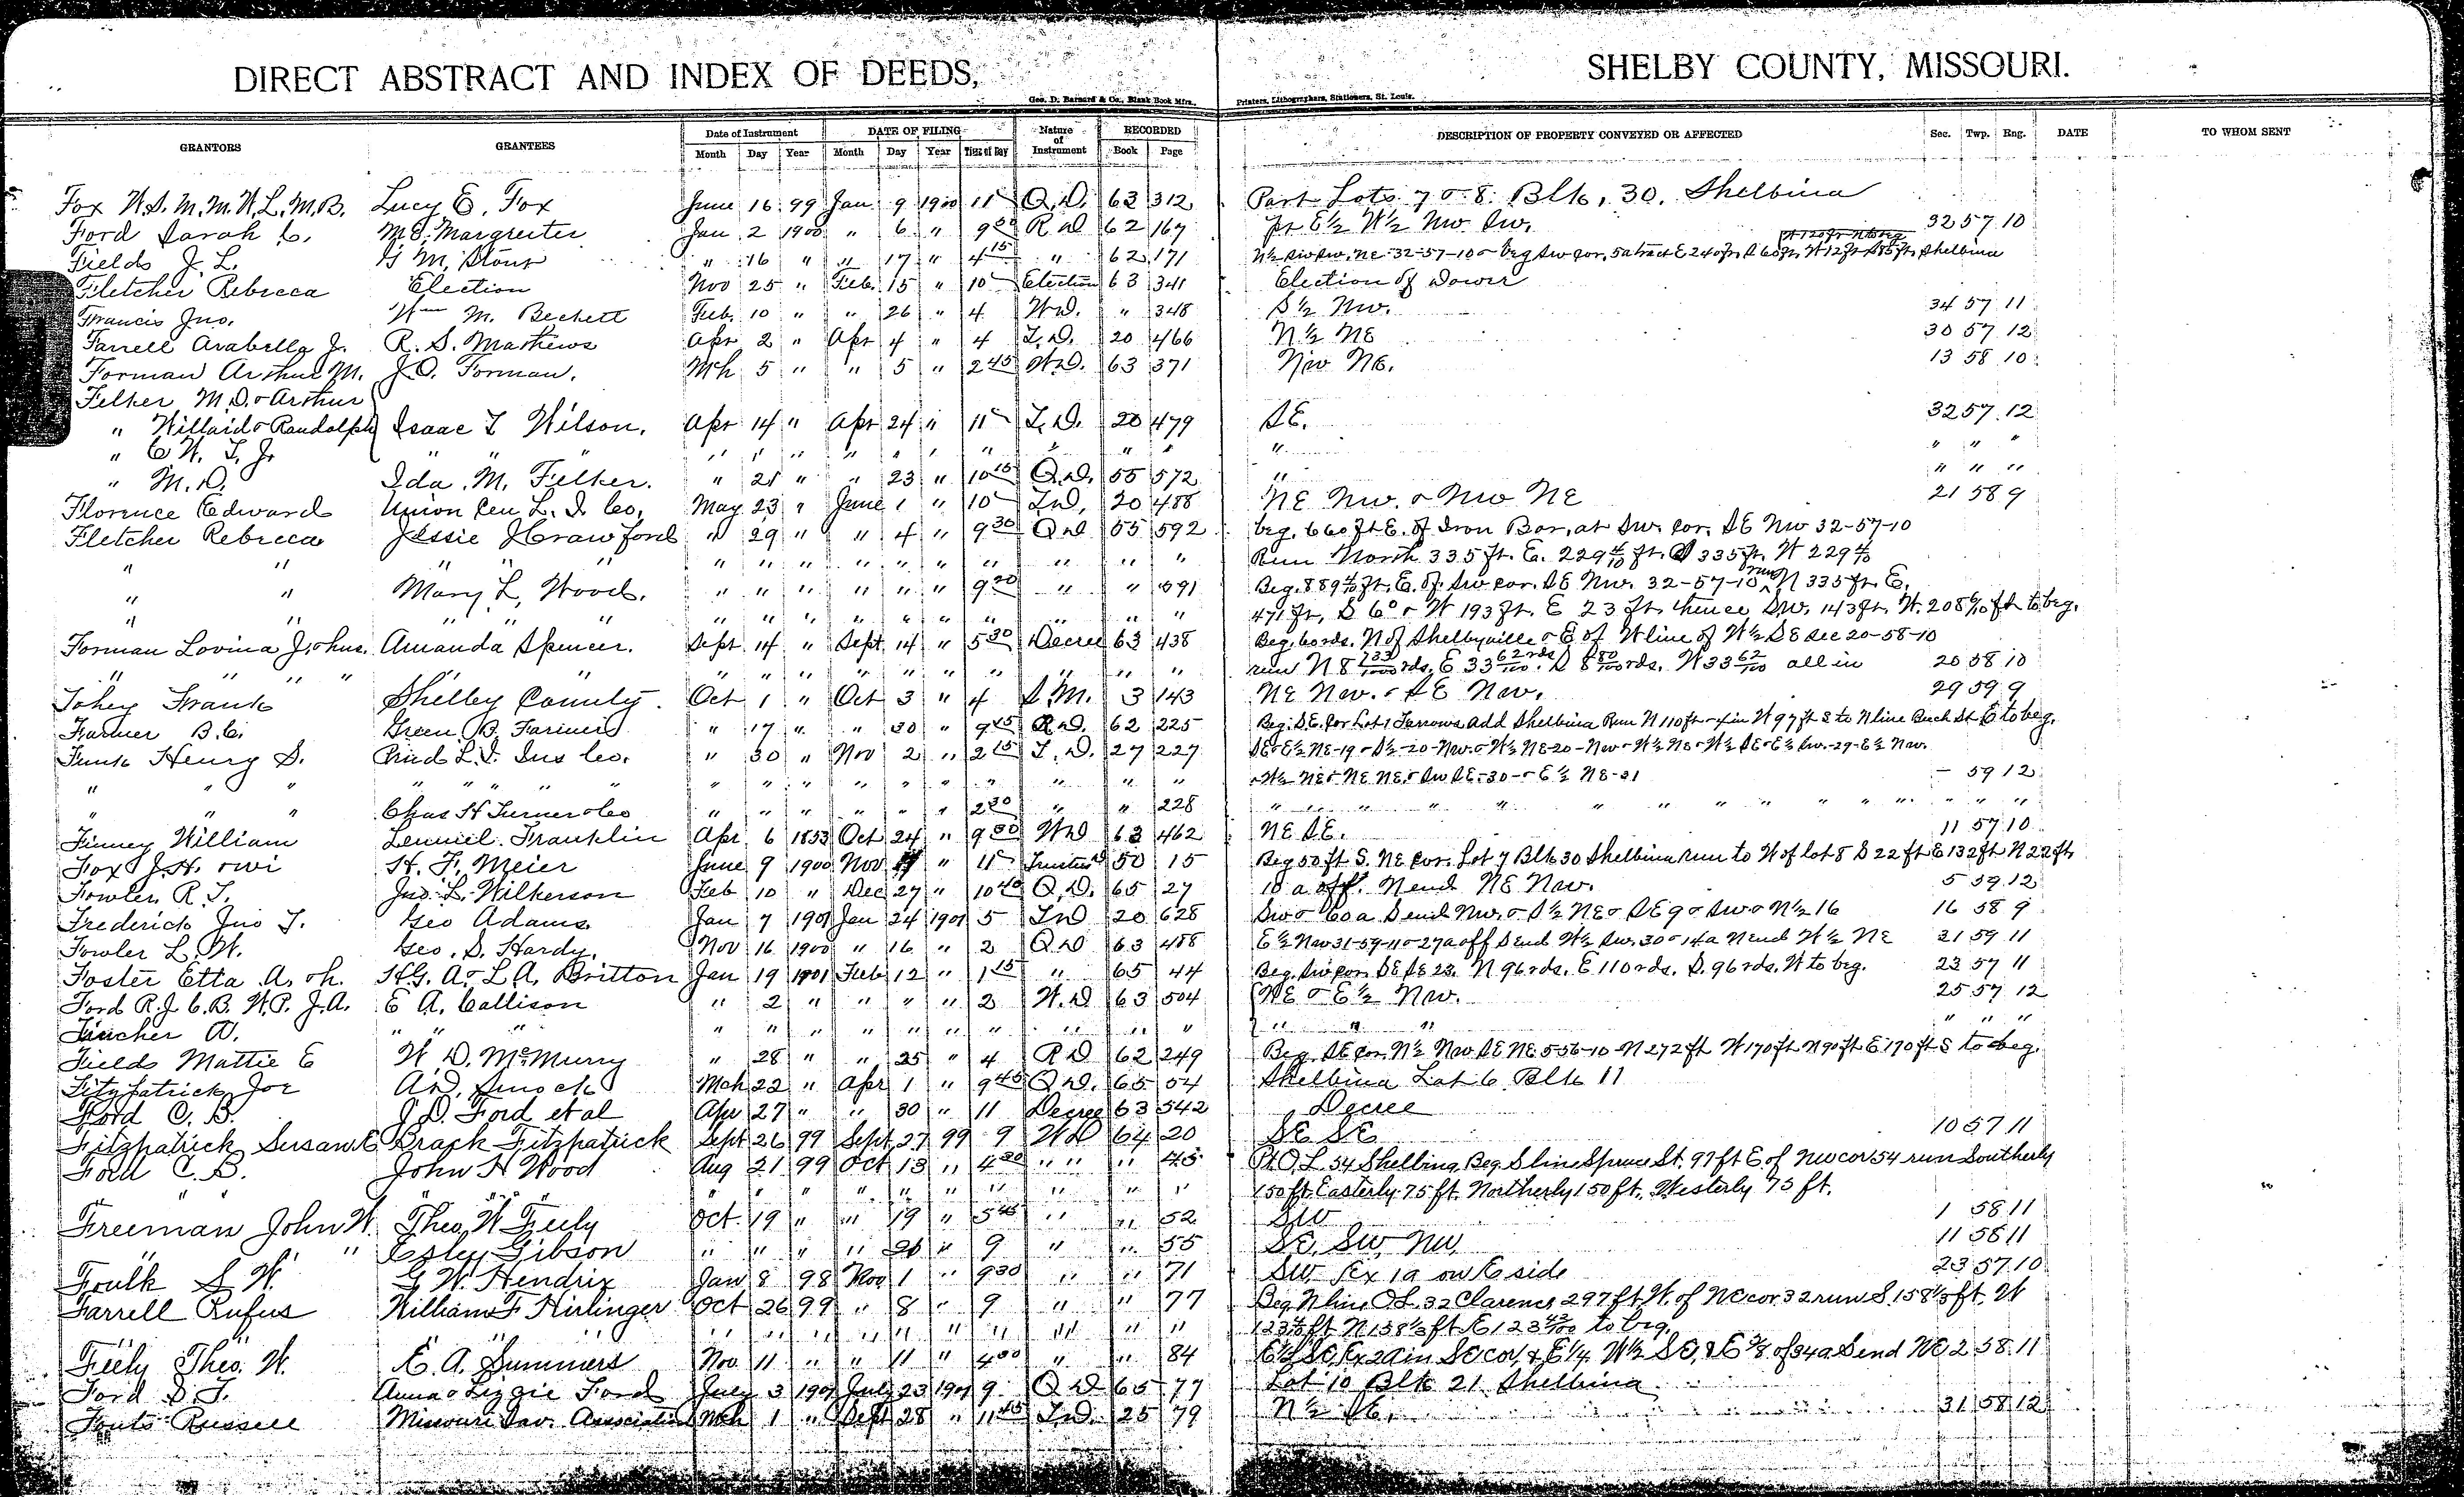 DIRECT ABSTRACT AND INDEX OF DEEDS, SHELBY COUNTY, MISSOURI.
Geo. D. Barnard & Co., Blank Book Mfrs., Printers, Lithographers, Stationers, St. Louis.
GRANTORS GRANTEES Date of Instrument DATE OF FILING Nature of Instrument RECORDED DESCRIPTION OF PROPERTY CONVEYED OR AFFECTED Sec. Twp. Rng. DATE TO WHOM SENT
Month Day Year Month Day Year Time of Day Book Page
Fox W.S. M.M. W.L. M.B. Lucy E. Fox June 16 99 Jan 9 1900 11 Q.D. 63 312 Part Lots 7 & 8 Blk, 30. Shelbina
Ford Sarah C. M.E. Margreiter Jan 2 1900 " 6 " 9 R D 62 167 pt E½ W½ Nw Sw. 32 57 10
Fields J. L. G M. Stout " 16 " " 17 " 4 15 " 62 171 Shelbina
Fletcher Rebecca Election Nov 25 " Feb. 15 " 10 Election 63 341 Election of Dower
Francis Jno. Wm M. Beckett Feb. 10 " " 26 " 4 W.D. " 348 S½ Nw. 34 57 11
Farrell Arabella J. R. S. Mathews Apr 2 " Apr 4 " 4 T.D. 20 466 N½ NE 30 57 12
Forman Arthur M. J.O. Forman. Mch 5 " " 5 " 2 45 W.D. 63 371 Nw NE. 13 58 10
Felker M.D. & Arthur
" Willard & Randolph Isaac T Wilson. Apr 14 " Apr 24 " 11 T.D. 20 479 SE. 32 57 12
" C W. T. Jr " " " " " " " " " " " " " " " " "
" M. D. Ida M. Felker. " 21 " " 23 " 10 15 Q.D. 55 572 " " " "
Florence Edward Union Cen L. I. Co. May 23 " June 1 " 10 T.D. 20 488 NE Nw. & Nw NE 21 58 9
Fletcher Rebecca Jessie H Crawford " 29 " " 4 " 9 30 Q.D 55 592 beg. 660 ft E. of Iron Bar, at Sw. cor. SE Nw 32-57-10
" " " " " " " " " " " " " " Run North 335 ft. E. 229 4/10 ft. S 335 ft. W 229 4/10
" " Mary L. Wood. " " " " " " 9 20 " " 591 Beg. 889 4/10 ft. E. of Sw cor. SE Nw. 32-57-10 run N 335 ft. E.
" " " " " " " " " " " " " 471 ft, S 6° W 193 ft. E 23 ft. thence Sw. 143 ft. W. 208 6/10 ft to beg.
Forman Lovina J. & hus. Amanda Spencer. Sept 14 " Sept 14 " 5 30 Decree 63 438 Beg. 60 rds. N of Shelbyville & E of W line of W½ SE Sec 20-58-10
" " " " " " " " " " " " " " " " run N 8 rds. E 33 62/100 rds. S 8 rds. W 33 62/100 all in 20 58 10
Tohey Frank Shelby County. Oct 1 " Oct 3 " 4 S.M. 3 143 NE Nw. & SE Nw. 29 59 9
Farmer B.C. Green B. Farmer " 17 " " 30 " 9 45 R.D. 62 225 Beg. SE. cor Lot 1 Farrows add Shelbina Run N 110 ft W 97 ft S to N line Buck St E to beg.
Funk Henry S. Prud L. I. Ins Co. " 30 " Nov 2 " 2 15 T. D. 27 227 SE & E½ NE-19 & S½-20-Nw. & W½ NE-20-Nw & W½ NE & W½ SE & E½ Sw.-29-E½ Nw.
" " " " " " " " " " " " " " " " & W½ NE & NE NE & Sw SE-30- & E½ NE-31 - 59 12
" " " Chas H Turner & Co " " " " " " 2 30 " " 228 " " " " " " " " " " "
Finney William Lemuel Franklin Apr 6 1853 Oct 24 " 9 30 W D 63 462 NE SE. 11 57 10
Fox J.H. & wi H. F. Meier June 9 1900 Nov " 11 Trustee D 50 15 Beg 50 ft S. NE cor. Lot 7 Blk 30 Shelbina run to W of lot 8 S 22 ft E 132 ft N 22 ft
Fowler R. T. Jno. L. Wilkerson Feb 10 " Dec 27 " 10 40 Q.D. 65 27 10 a off. N end NE Nw. 5 59 12
Frederick Jno T. Geo Adams. Jan 7 1901 Jan 24 1901 5 T D 20 628 Sw & 60 a S end Nw. & S½ NE & SE 9 & Sw & N½ 16 16 58 9
Fowler L. W. Geo. S. Hardy. Nov 16 1900 " 16 " 2 Q D 63 488 E½ Nw 31-59-11 & 27 a off S end W½ Sw. 30 & 14 a N end W½ NE 31 59 11
Foster Etta A. & h. H.G. A. & L.A. Britton Jan 19 1901 Feb 12 " 1 15 " 65 44 Beg. Sw cor. SE SE 23. N 96 rds. E 110 rds. S. 96 rds. W to beg. 23 57 11
Ford R.J. C.B. W.P. J.A. E A. Callison " 2 " " " " 2 W. D 63 504 NE & E½ Nw. 25 57 12
Fincher A. " " " " " " " " " " " " " " " " " " "
Fields Mattie E W. D. McMurry " 28 " " 25 " 4 R D 62 249 Beg. SE cor. N½ Nw SE NE 5-56-10-N 272 ft W 170 ft N 90 ft E 170 ft S to beg.
Fitzpatrick Joe A.D. Smock Mch 22 " Apr 1 " 9 45 Q.D. 65 54 Shelbina Lot 6 Blk 11
Ford C. B. J. D. Ford et al Apr 27 " " 30 " 11 Decree 63 542 Decree
Fitzpatrick Susan E Brack Fitzpatrick Sept 26 99 Sept 27 99 9 W D 64 20 SE SE 10 57 11
Ford C. B. John H Wood Aug 21 99 Oct 13 " 4 30 " " " 45 Pt O L 54 Shelbina Beg S line Spruce St. 97 ft E of NW cor 54 run Southerly
" " " " " " " " " " " " 150 ft. Easterly 75 ft. Northerly 150 ft. Westerly 75 ft.
Freeman John W. Theo. W Feely Oct 19 " " 19 " 5 45 " " 52 SW 1 58 11
" " Esley Gibson " " " " 26 " 9 " " 55 SE, SW, NW, 11 58 11
Foulk S W. G W. Hendrix Jan 8 98 Nov 1 " 9 30 " " 71 SW Ex 1 a on E side 23 57 10
Farrell Rufus William F Hirlinger Oct 26 99 " 8 " 9 " " 77 Beg N line O L. 32 Clarence 297 ft W. of NE cor 32 run S. 158⅓ ft. W
" " " " " " " " " " " " " 123 ft N 158⅓ ft E 123 to beg.
Feely Theo. W. E. A. Summers Nov 11 " " 11 " 4 30 " " 84 E½ SE, Ex 2 a in SE cor, & E¼ W½ SE, & E⅜ of 34 a S end NE 2 58 11
Ford S. T. Anna & Lizzie Ford July 3 1901 July 23 1901 9 Q D 65 77 Lot 10 Blk 21 Shelbina
Fouts Russell Missouri Sav. Association Mch 1 " Sept 28 " 11 45 T.D. 25 79 N½ SE. 31 58 12